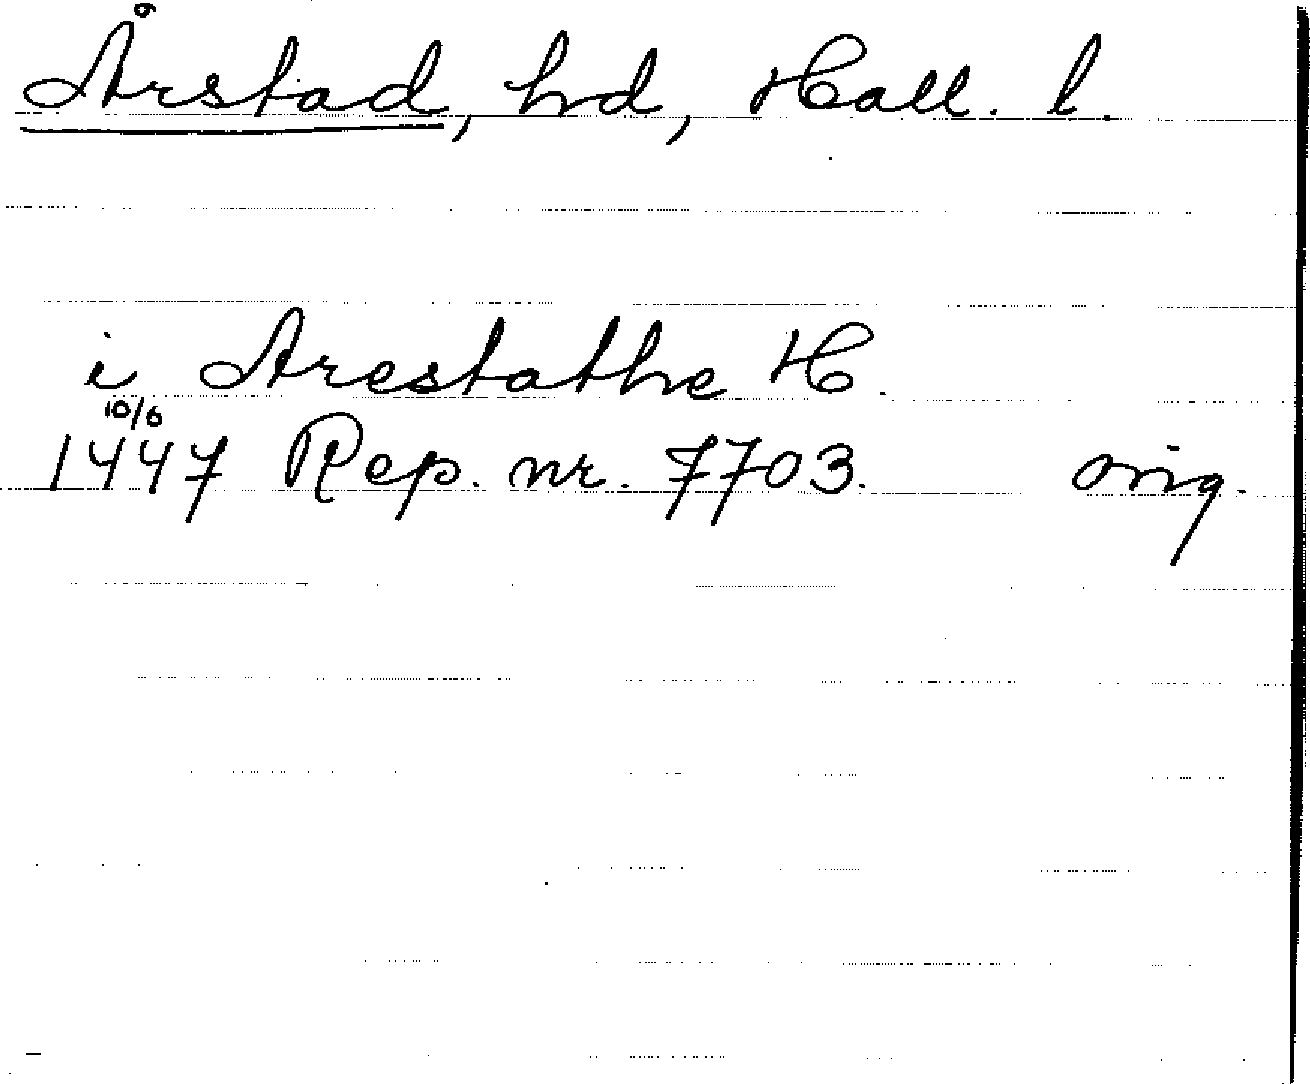 Årstad, hd, Hall. l.
i Arestathe H.
10/6
1447 Rep. nr. 7703. orig.